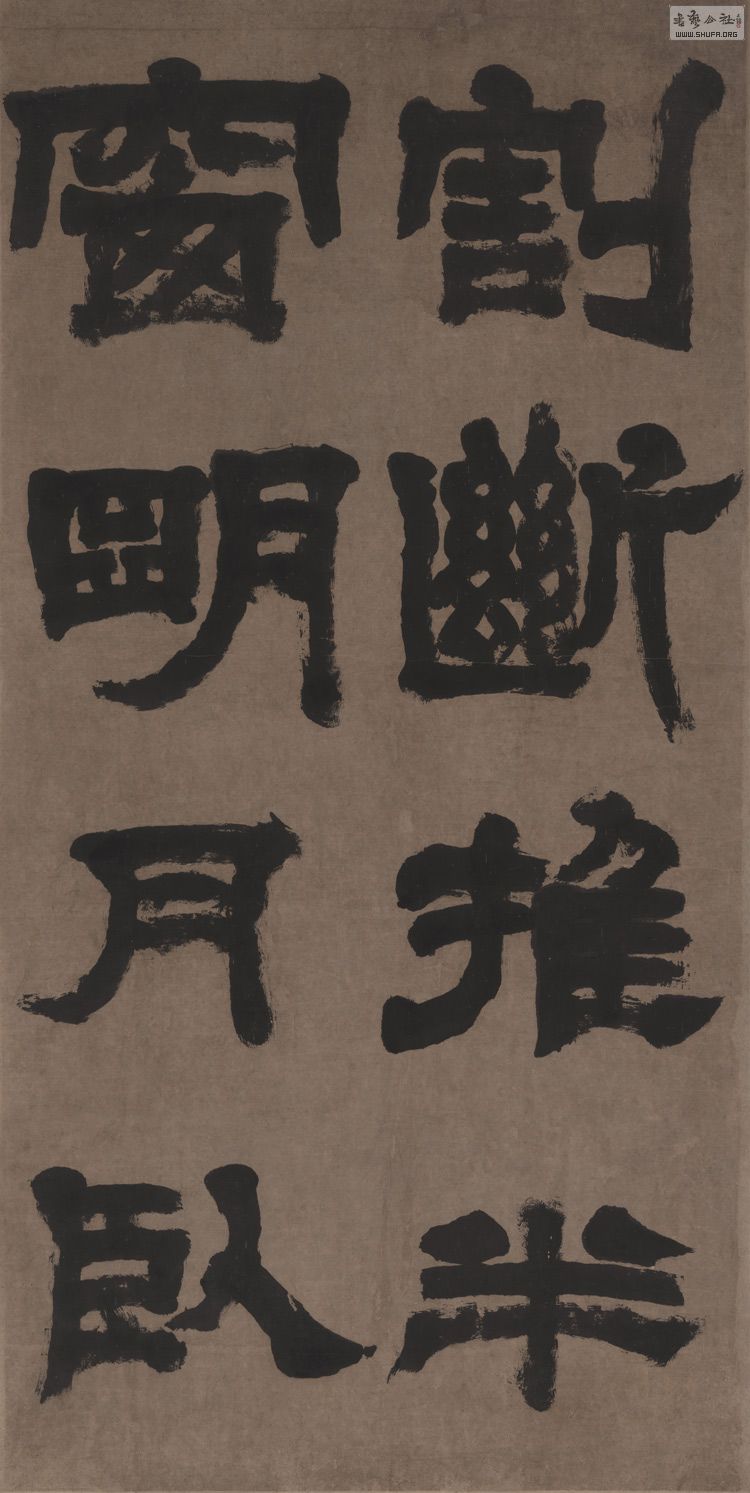 割斷推半
窗明月臥
書藝公社
WWW.SHUFA.ORG